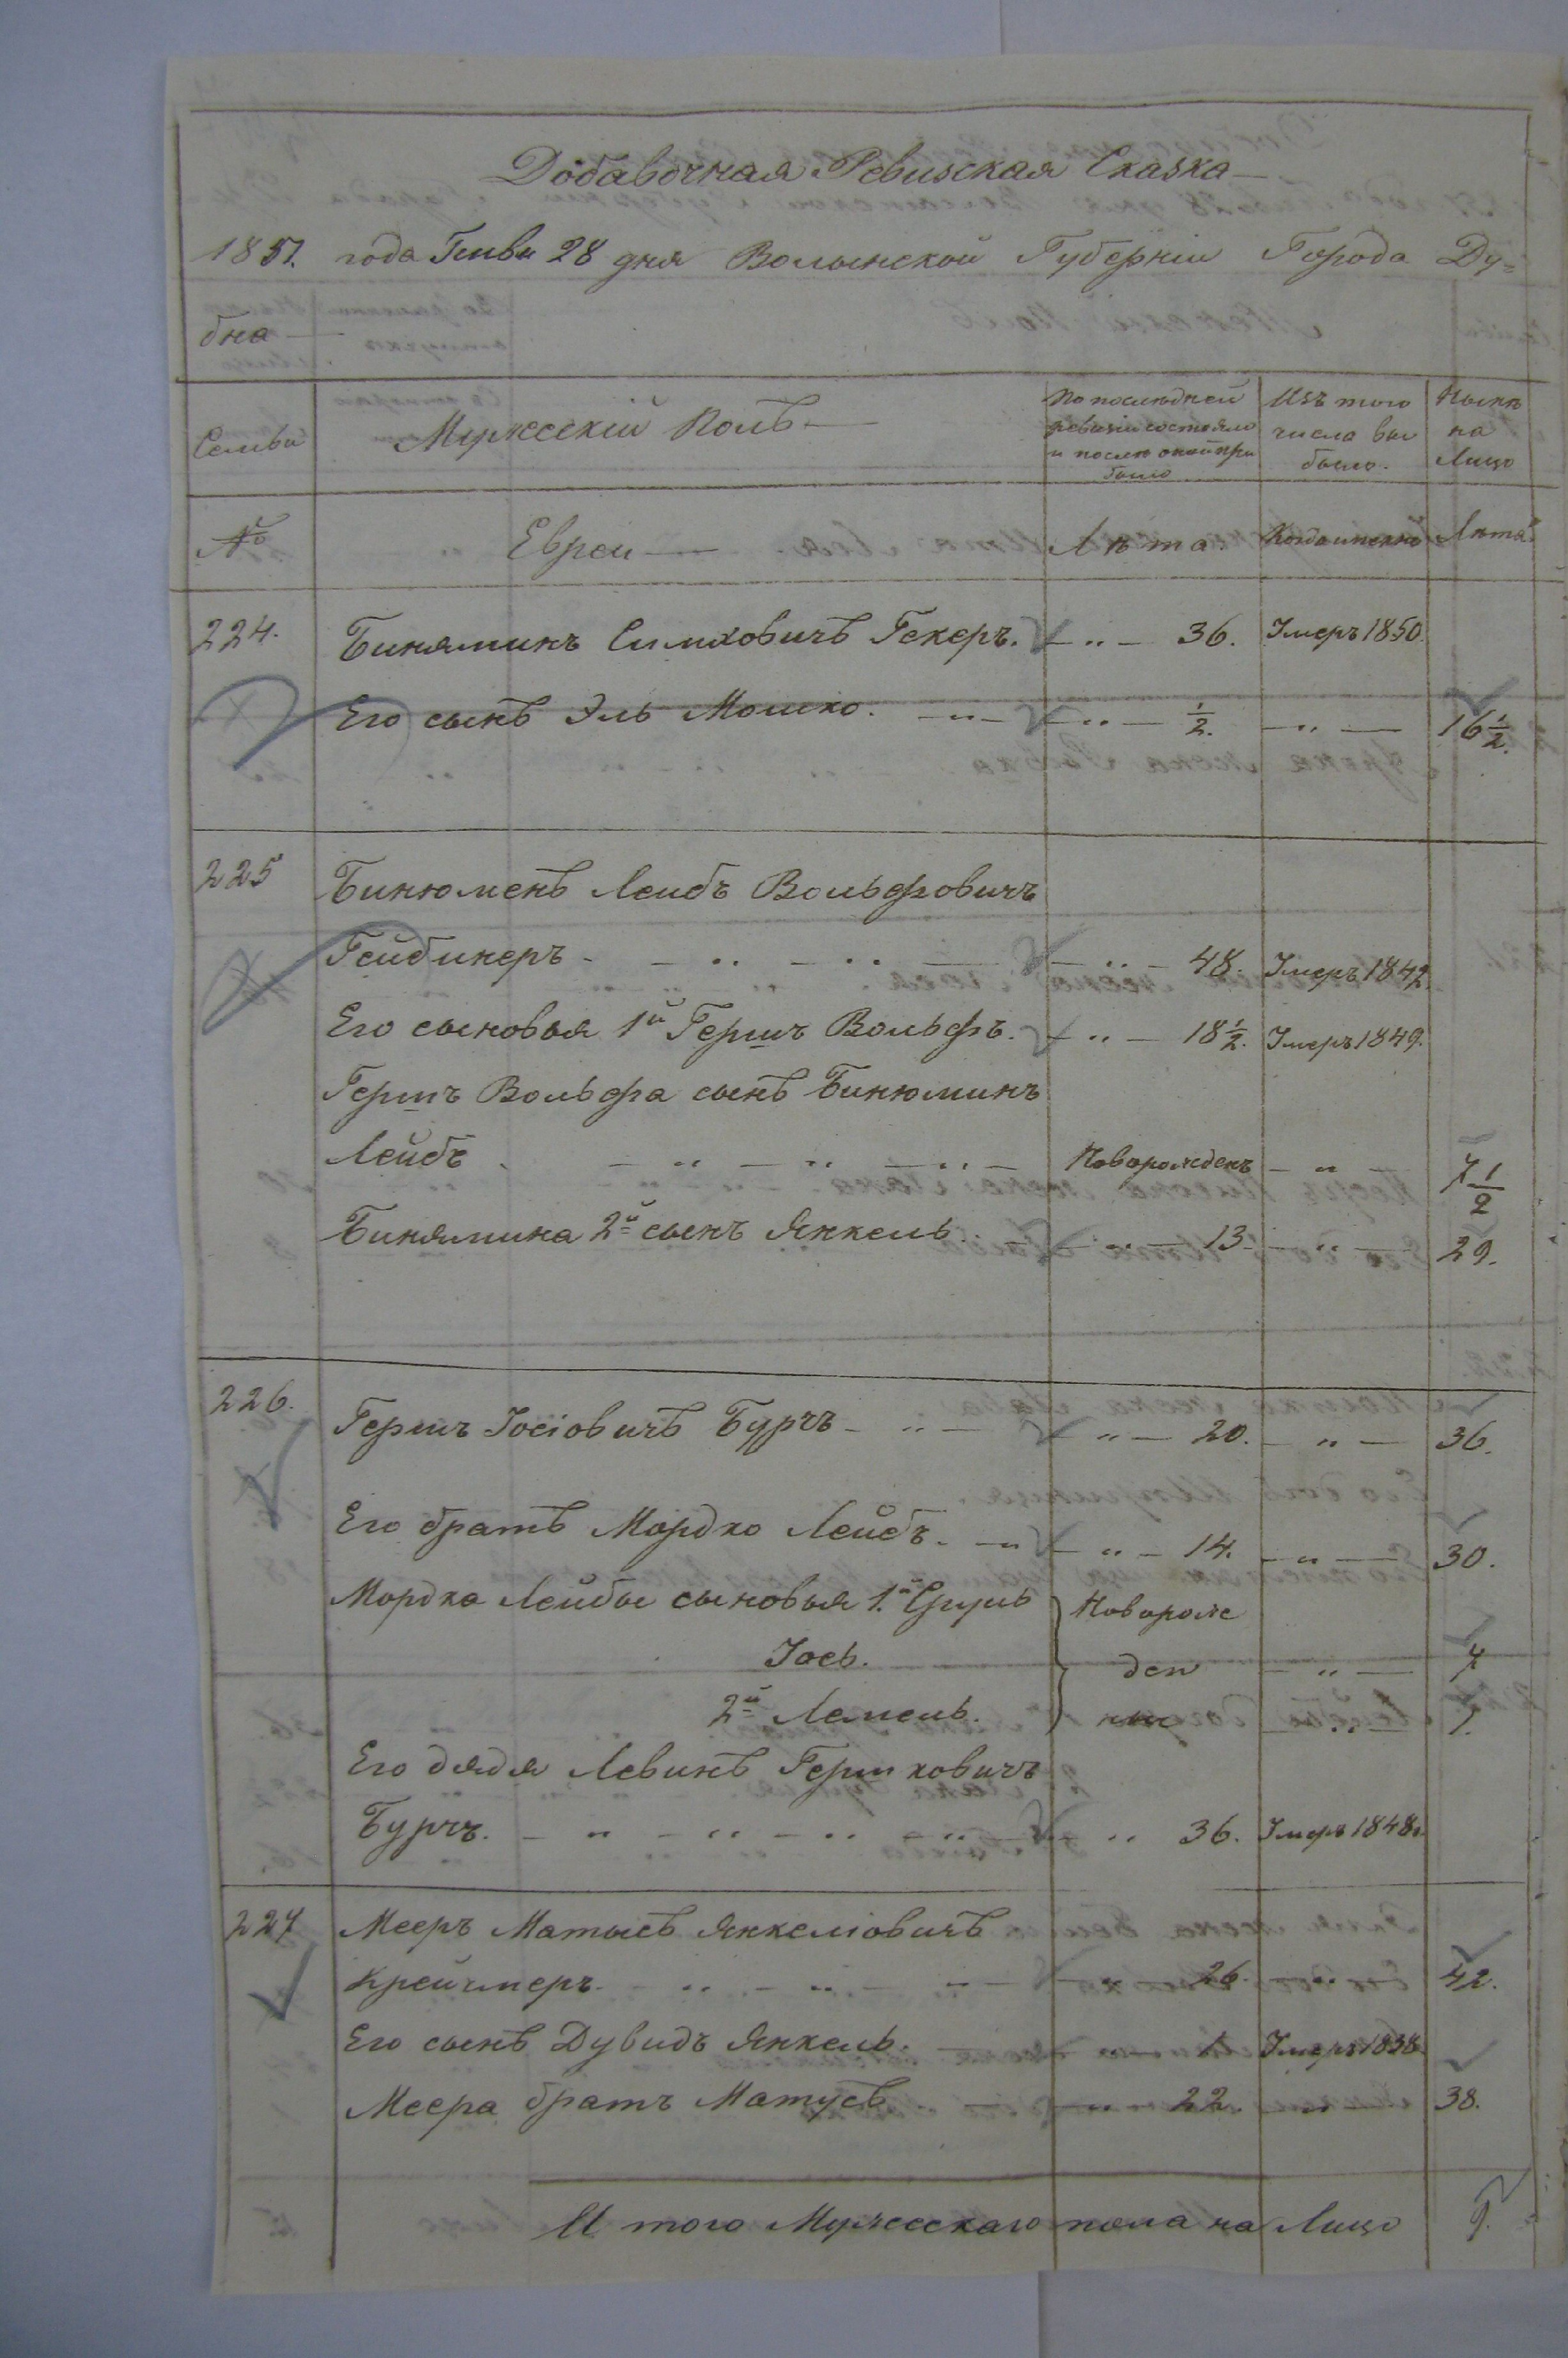 Добавочная Ревизская Сказка
1851. года Генвя 28 дня Волынской Губерніи Города Ду=
бна
Семьи Мужескій Полъ По последней ревизіи состояло и после оной при было Изъ того числа вы было. Ныне на Лицо
№ Евреи Лѣта. Когда именно Лѣта
224. Биняминъ Симховичъ Гекеръ. 36. Умеръ 1850.
Его сынъ Эль Мошко. ½. 16½.
225 Бинюменъ Лейбъ Вольфовичъ
Гейбинеръ 48. Умеръ 1842.
Его сыновья 1й Гершъ Вольфъ. 18½. Умеръ 1849.
Гершъ Вольфа сынъ Бинюминъ
Лейбъ Новорожденъ 7½
Бинямина 2й сынъ Янкель 13. 29.
226. Гершъ Іосіовичъ Бурчъ 20. 36.
Его братъ Мордко Лейбъ. 14. 30.
Мордка Лейбы сыновья 1й Сруль Новорож
Іось. ден 7
2й Лемель. ные 1.
Его дядя Левинъ Гершковичъ
Бурчъ. 36. Умеръ 1848г.
227 Мееръ Матысъ Янкеліовичъ
Крейчмеръ 26. 42.
Его сынъ Дувидъ Янкель. 1 Умеръ 1838.
Меера братъ Матусъ 22. 38.
И того Мужескаго пола на Лицо 9.